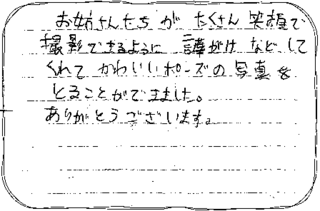 お姉さんたちが たくさん 笑顔で
撮影できるように 声がけ などして
くれて かわいいポーズの写真を
とることができました。
ありがとうございます。